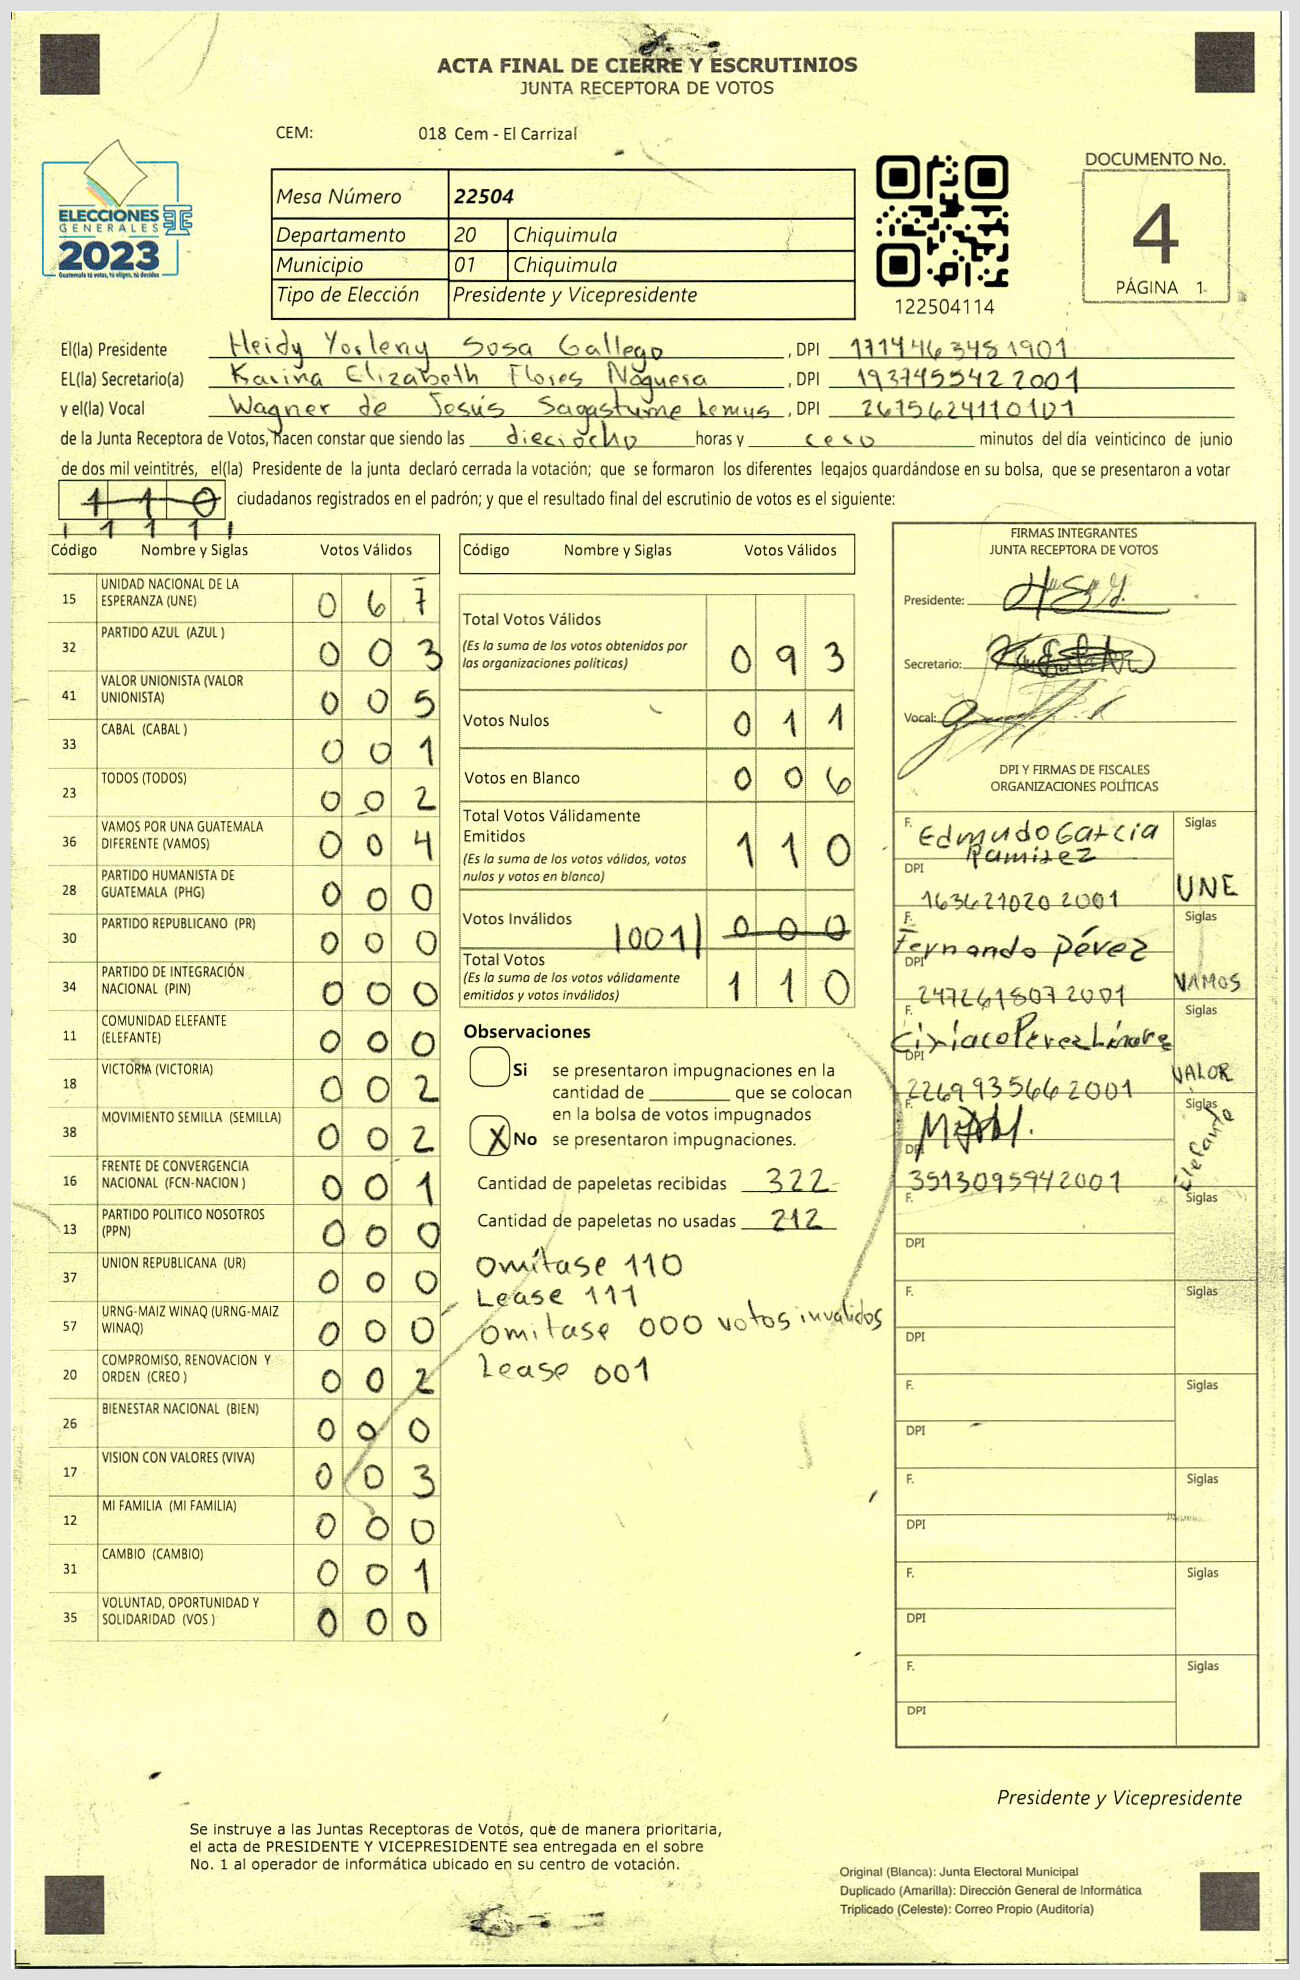 ACTA FINAL DE CIERRE Y ESCRUTINIOS
JUNTA RECEPTORA DE VOTOS
CEM: 018 Cem - El Carrizal
ELECCIONES
GENERALES
2023
Guatemala tú votas, tú eliges, tú decides
Mesa Número 22504
Departamento 20 Chiquimula
Municipio 01 Chiquimula
Tipo de Elección Presidente y Vicepresidente
122504114
DOCUMENTO No.
4
PÁGINA 1
El(la) Presidente Heidy Yosleny Sosa Gallego, DPI 1714463481901
EL(la) Secretario(a) Karina Elizabeth Flores Noguera, DPI 1937455422001
y el(la) Vocal Wagner de Jesús Sagastume Lemus, DPI 2675624110101
de la Junta Receptora de Votos, hacen constar que siendo las dieciocho horas y cero minutos del día veinticinco de junio
de dos mil veintitrés, el(la) Presidente de la junta declaró cerrada la votación; que se formaron los diferentes legajos quardándose en su bolsa, que se presentaron a votar
110 ciudadanos registrados en el padrón; y que el resultado final del escrutinio de votos es el siguiente:
111
Código Nombre y Siglas Votos Válidos
15 UNIDAD NACIONAL DE LA ESPERANZA (UNE) 0 6 7
32 PARTIDO AZUL (AZUL ) 0 0 3
41 VALOR UNIONISTA (VALOR UNIONISTA) 0 0 5
33 CABAL (CABAL ) 0 0 1
23 TODOS (TODOS) 0 0 2
36 VAMOS POR UNA GUATEMALA DIFERENTE (VAMOS) 0 0 4
28 PARTIDO HUMANISTA DE GUATEMALA (PHG) 0 0 0
30 PARTIDO REPUBLICANO (PR) 0 0 0
34 PARTIDO DE INTEGRACIÓN NACIONAL (PIN) 0 0 0
11 COMUNIDAD ELEFANTE (ELEFANTE) 0 0 0
18 VICTORIA (VICTORIA) 0 0 2
38 MOVIMIENTO SEMILLA (SEMILLA) 0 0 2
16 FRENTE DE CONVERGENCIA NACIONAL (FCN-NACION ) 0 0 1
13 PARTIDO POLITICO NOSOTROS (PPN) 0 0 0
37 UNION REPUBLICANA (UR) 0 0 0
57 URNG-MAIZ WINAQ (URNG-MAIZ WINAQ) 0 0 0
20 COMPROMISO, RENOVACION Y ORDEN (CREO ) 0 0 2
26 BIENESTAR NACIONAL (BIEN) 0 0 0
17 VISION CON VALORES (VIVA) 0 0 3
12 MI FAMILIA (MI FAMILIA) 0 0 0
31 CAMBIO (CAMBIO) 0 0 1
35 VOLUNTAD, OPORTUNIDAD Y SOLIDARIDAD (VOS ) 0 0 0
Código Nombre y Siglas Votos Válidos
Total Votos Válidos 0 9 3
(Es la suma de los votos obtenidos por
las organizaciones políticas)
Votos Nulos 0 1 1
Votos en Blanco 0 0 6
Total Votos Válidamente
Emitidos 1 1 0
(Es la suma de los votos válidos, votos
nulos y votos en blanco)
Votos Inválidos 001 0 0 0
Total Votos 1 1 0
(Es la suma de los votos válidamente
emitidos y votos inválidos)
Observaciones
Si se presentaron impugnaciones en la
cantidad de ________ que se colocan
en la bolsa de votos impugnados
X No se presentaron impugnaciones.
Cantidad de papeletas recibidas 322
Cantidad de papeletas no usadas 212
Omítase 110
Lease 111
omitase 000 votos invalidos
Lease 001
FIRMAS INTEGRANTES
JUNTA RECEPTORA DE VOTOS
Presidente:
Secretario:
Vocal:
DPI Y FIRMAS DE FISCALES
ORGANIZACIONES POLÍTICAS
F. Edmundo Garcia Ramirez Siglas
DPI 163621020 2001 UNE
F. Fernando Pérez Siglas
DPI 247261807 2001 VAMOS
F. Ciriaco Perez Linare Siglas
DPI 226993566 2001 VALOR
F. Siglas
DPI 3513095942001 Elefante
F. Siglas
DPI
F. Siglas
DPI
F. Siglas
DPI
F. Siglas
DPI
F. Siglas
DPI
F. Siglas
DPI
Presidente y Vicepresidente
Se instruye a las Juntas Receptoras de Votos, que de manera prioritaria,
el acta de PRESIDENTE Y VICEPRESIDENTE sea entregada en el sobre
No. 1 al operador de informática ubicado en su centro de votación.
Original (Blanca): Junta Electoral Municipal
Duplicado (Amarilla): Dirección General de Informática
Triplicado (Celeste): Correo Propio (Auditoría)